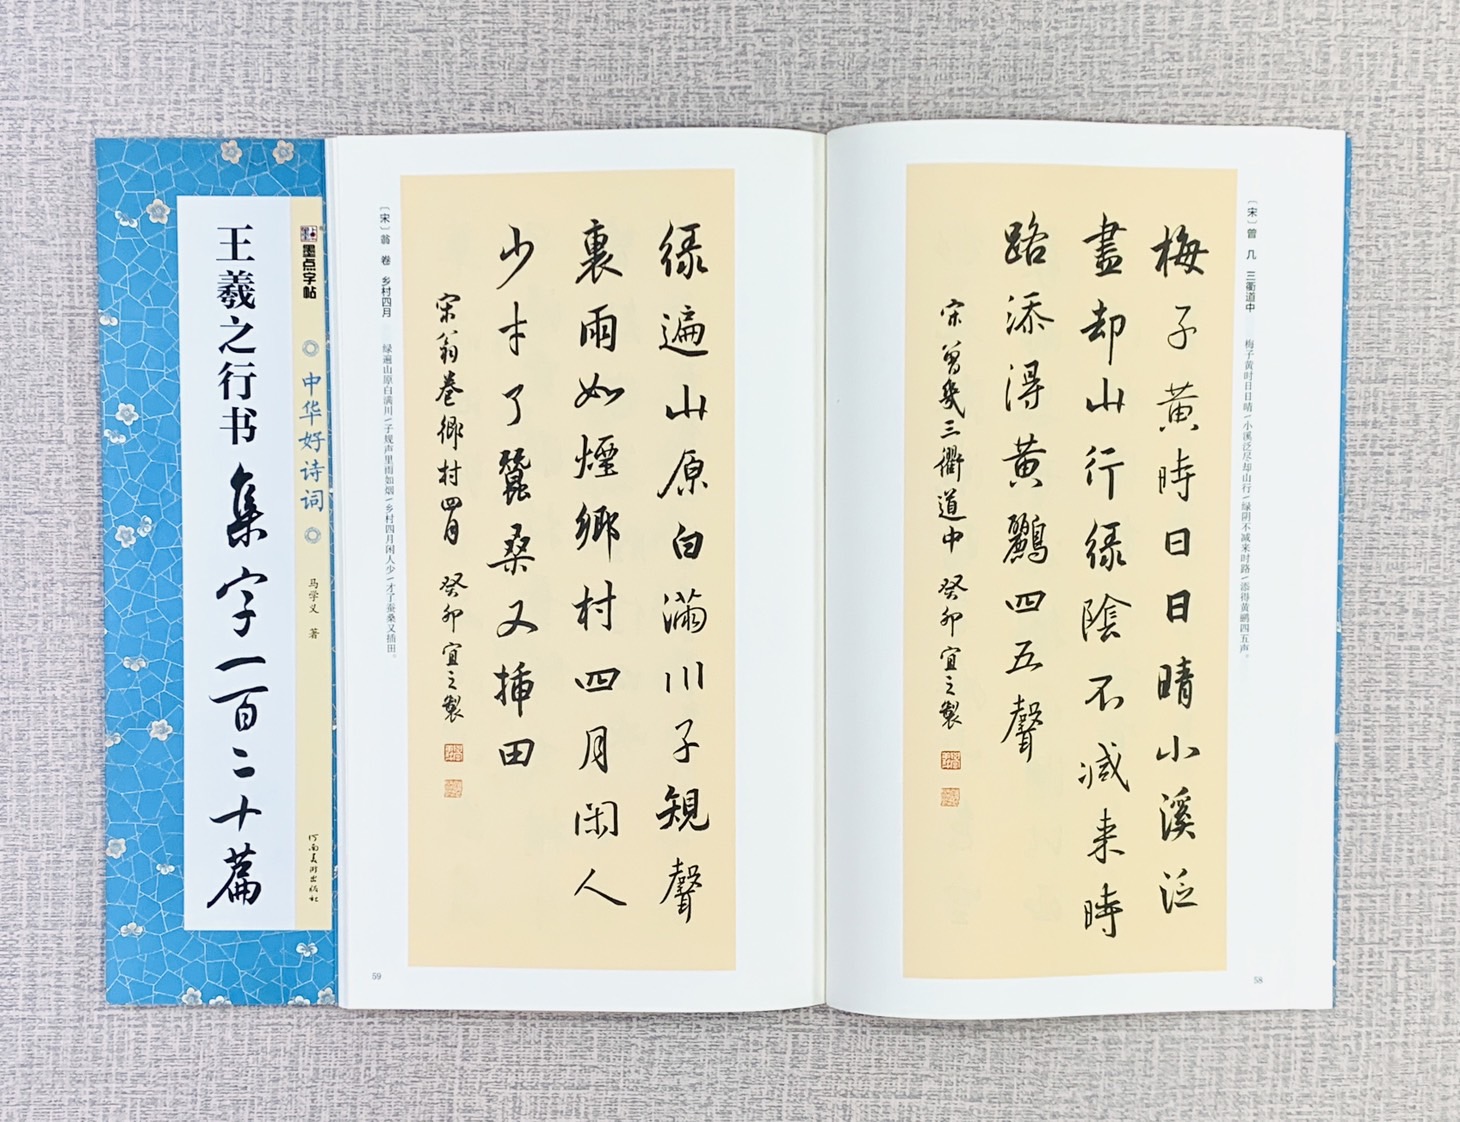 墨点字帖
中华好诗词
马学义 著
河南美术出版社
王羲之行书
集字一百二十篇
〔宋〕曾几 三衢道中
梅子黄时日日晴/小溪泛尽却山行/绿阴不减来时路/添得黄鹂四五声。
梅子黃時日日晴小溪泛
盡却山行緑陰不減来時
路添得黃鸝四五聲
宋曾幾三衢道中 癸卯宜之製
58
〔宋〕翁卷 乡村四月
绿遍山原白满川/子规声里雨如烟/乡村四月闲人少/才了蚕桑又插田。
緑遍山原白滿川子規聲
裏雨如煙鄉村四月閑人
少才了蠶桑又插田
宋翁卷鄉村四月 癸卯宜之製
59